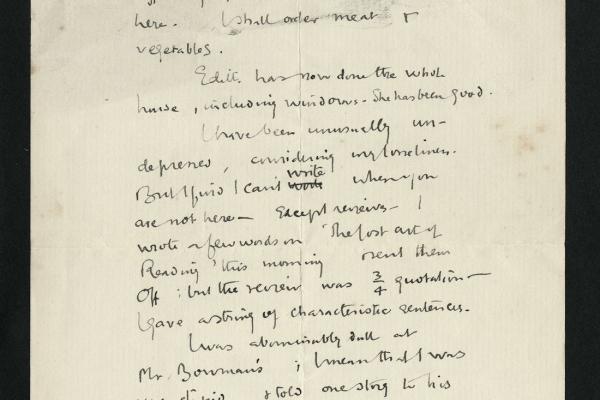 here. I shall order meat &
vegetables.
Edith has now done the whole
house, including windows. She has been good.
I have been unusually un-
depressed, considering my loneliness.
But I find I can't work write when you
are not here — Except reviews — I
wrote a few words on 'The lost art of
Reading' this morning & sent them
off; but the review was 3/4 quotation —
I gave a string of characteristic sentences.
I was abominably dull at
Mr. Bowman's; I mean that I was
& told one story to his